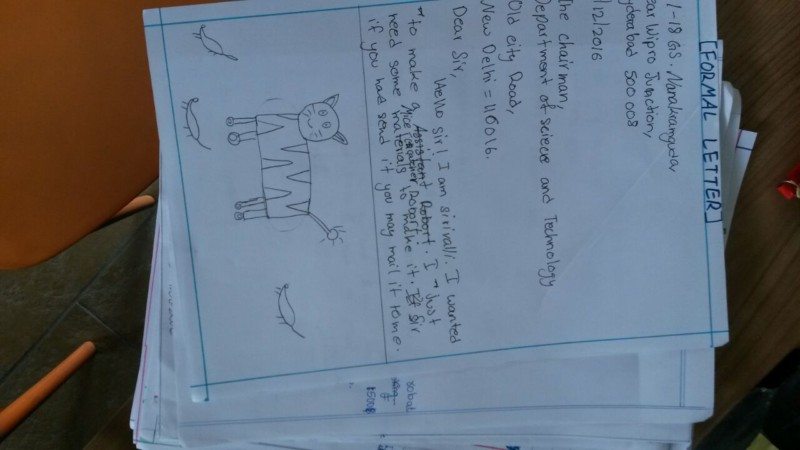 [FORMAL LETTER]
1-18 GS. Nanakramguda
ear Wipro Junction,
yderabad 500 008
/12/2016
he chairman,
Department of sciece and Technology
Old city Road,
New Delhi = 110016.
Dear Sir,
Hello sir! I am sirivalli. I wanted
to make a Assistant Robort. I Just
Mice catcher Robort
need some materials to make it. Sir
if you had send it you may mail it to me.
robot